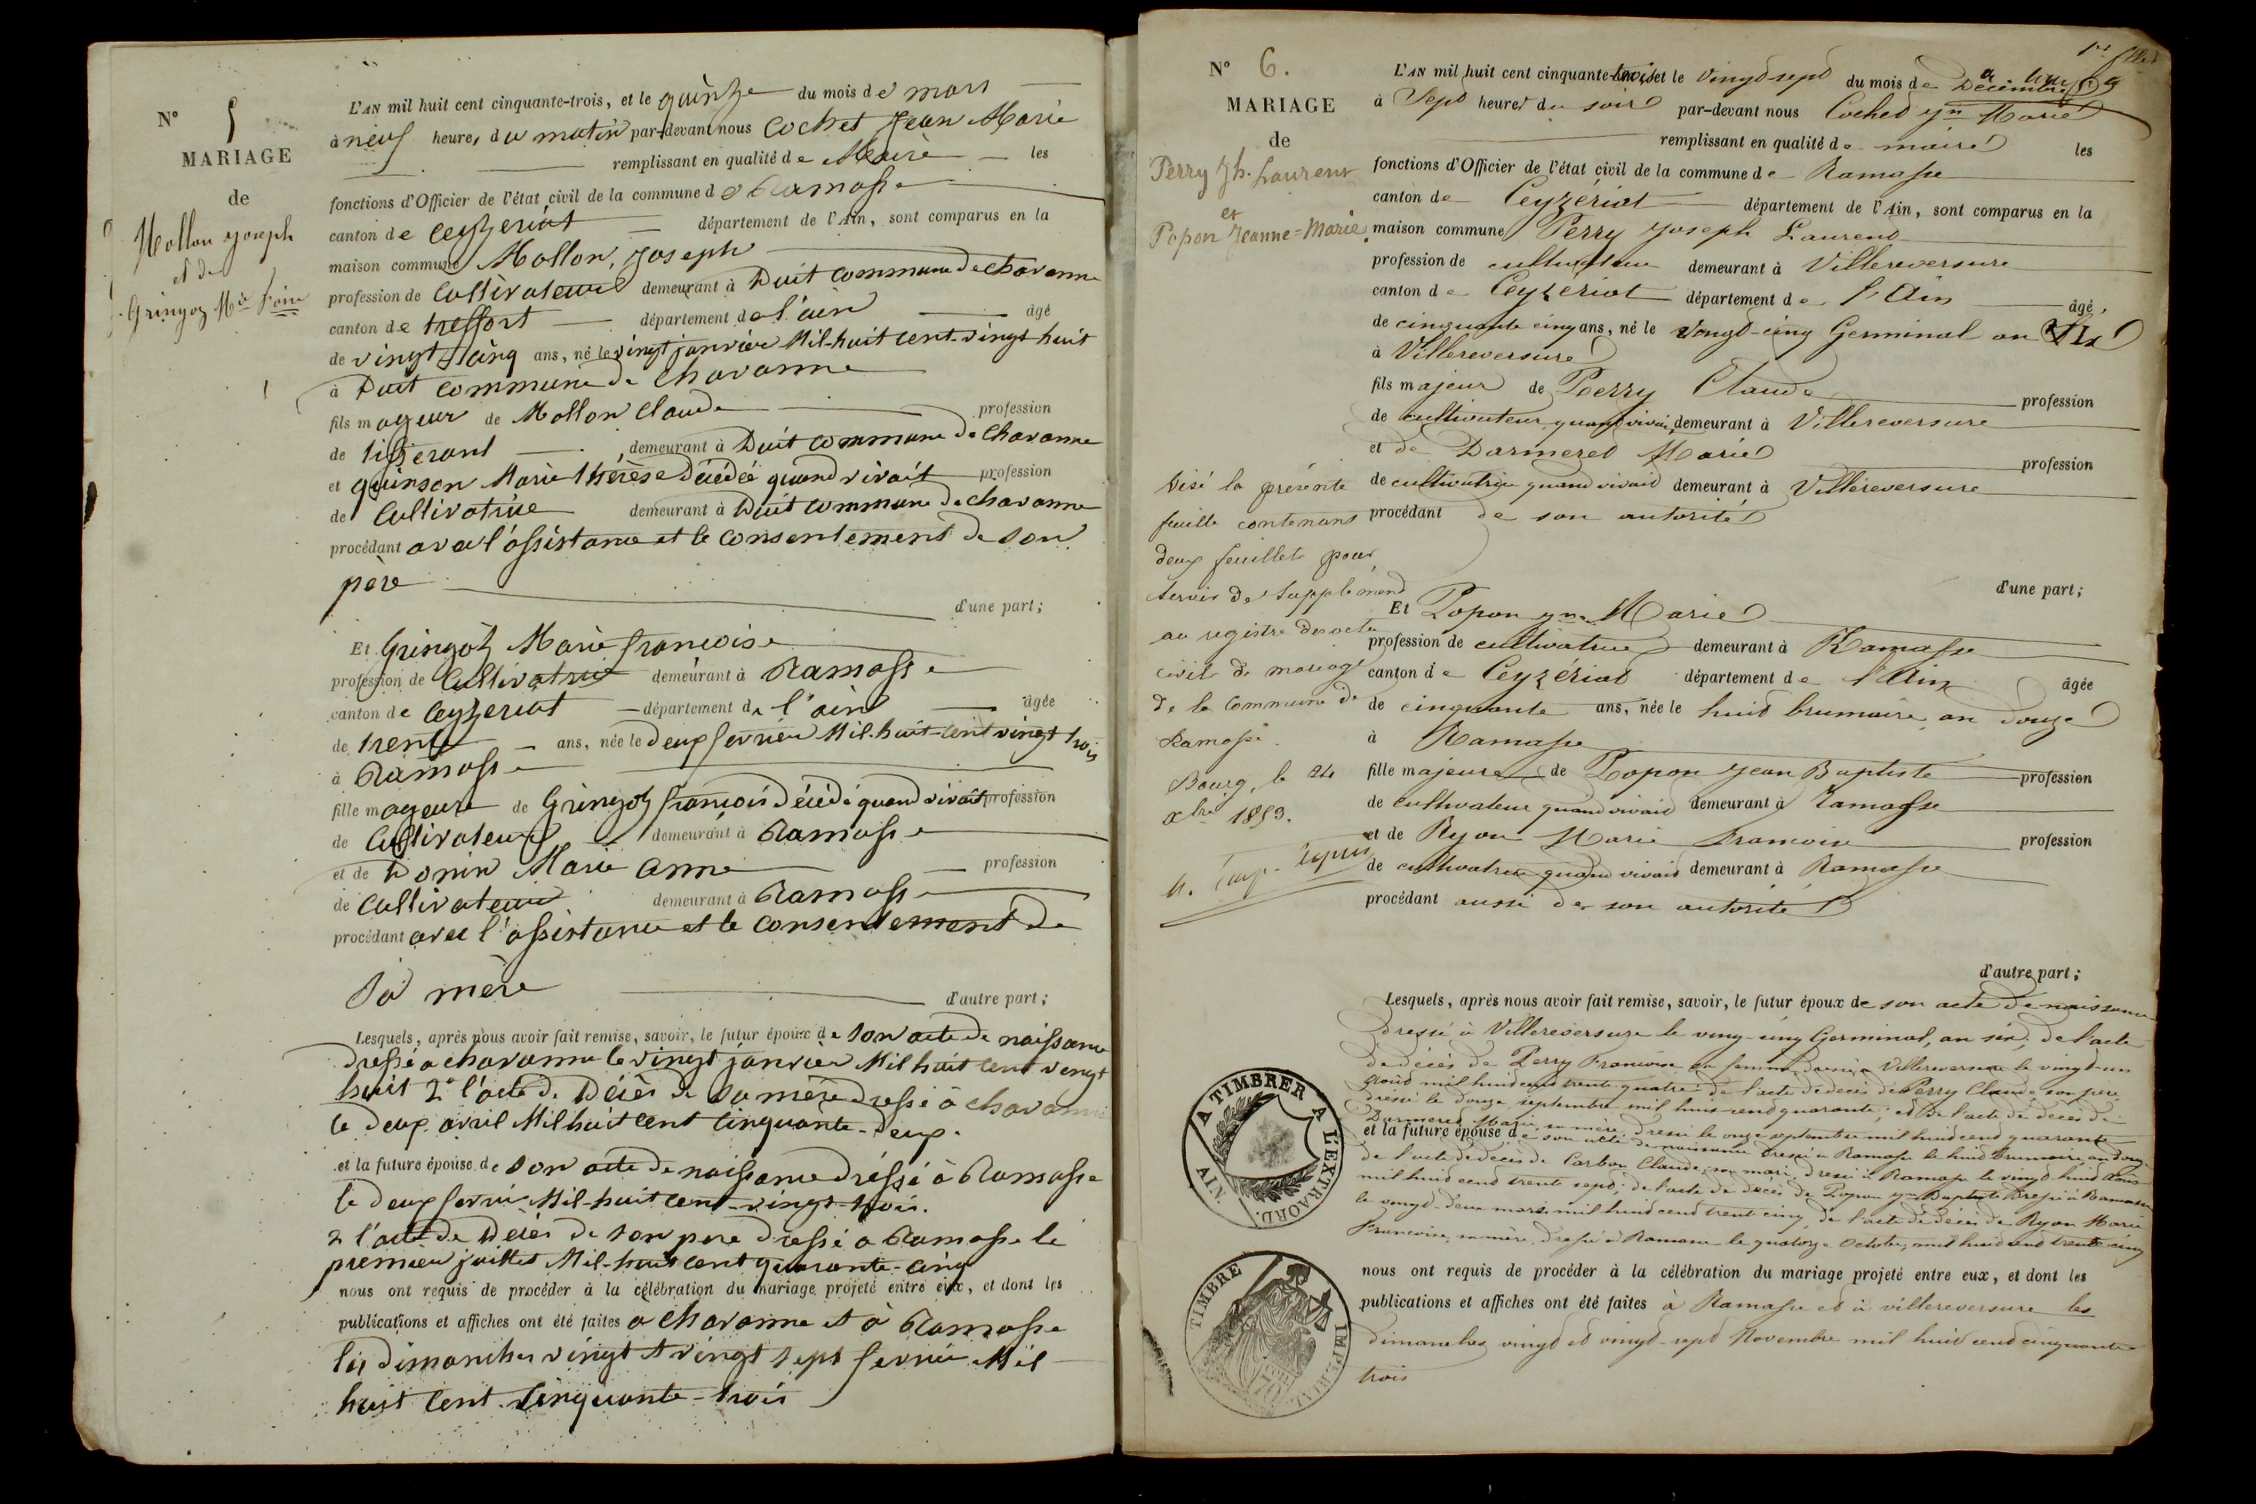 N° 5
MARIAGE
de
Mollon Joseph
et de
Gringoz Mie Foise
L'AN mil huit cent cinquante-trois, et le quinze du mois de mars
à neuf heures du matin par-devant nous Cochet Jean Marie
remplissant en qualité de Maire les
fonctions d'Officier de l'état civil de la commune de Ramasse
canton de Ceyzeriat département de l'Ain, sont comparus en la
maison commune Mollon, Joseph
profession de Cultivateur demeurant à Duit commune de Chavanne
canton de treffort département de l'ain âgé
de vingt cinq ans, né le vingt janvier Mil-huit cent-vingt huit
à Duit commune de Chavanne
fils majeur de Mollon Claude profession
de tisserant demeurant à Duit commune de Chavanne
et quinson Marie thérèse Décédée quand vivait profession
de Cultivatrice demeurant à Duit commune de Chavanne
procédant avec l'assistance et le consentement de son
père
d'une part;
Et Gringoz Marie françoise
profession de Cultivatrice demeurant à Ramasse
canton de Ceyzeriat département de l'ain âgée
de trente ans, née le Deux fevrier Mil-huit-cent vingt trois
à Ramasse
fille majeure de Gringoz françois Décédé quand vivait profession
de Cultivateur demeurant à Ramasse
et de Donin Marie anne profession
de Cultivateur demeurant à Ramasse
procédant avec l'assistance et le consentement de
sa mère
d'autre part;
Lesquels, après nous avoir fait remise, savoir, le futur époux de son acte de naissance
dressé à Chavanne le vingt janvier Mil huit cent vingt
huit 2° l'acte de Décès de sa mère dressé à Chavanne
le deux avril Mil huit cent cinquante-deux.
et la future épouse de son acte de naissance dréssé à Ramasse
le deux fevrier Mil-huit cent-vingt-trois.
2 l'acte de Décès de son pere dressé a Ramasse le
premier juillet Mil-huit cent quarante-cinq
nous ont requis de procéder à la célébration du mariage projeté entre eux, et dont les
publications et affiches ont été faites a Chavanne et à Ramasse
les dimanches vingt et vingt sept fevrier Mil
huit cent cinquante-trois
N° 6.
MARIAGE
de
Perry Jh. Laurent
et
Popon Jeanne=Marie.
Visé la présente
feuille contenant
deux feuillets pour
servir de supplément
au registre des actes
civils de mariage
de la Commune de
Ramasse
Bourg, le 24
xbre 1853.
L'AN mil huit cent cinquante-trois et le vingt sept du mois de Décembre
à Sept heures du soir par-devant nous Cochet Jn Marie
remplissant en qualité de maire les
fonctions d'Officier de l'état civil de la commune de Ramasse
canton de Ceyzériat département de l'Ain, sont comparus en la
maison commune Perry Joseph Laurent
profession de cultivateur demeurant à Villereversure
canton de Ceyzeriat département de l'Ain âgé
de cinquante cinq ans, né le vingt-cinq Germinal an
à Villereversure
fils majeur de Perry Claude profession
de cultivateur quand vivait demeurant à Villereversure
et de Darmeret Marie profession
de cultivatrice quand vivait demeurant à Villereversure
procédant de son autorité
d'une part;
Et Popon Jne Marie
profession de cultivatrice demeurant à Ramasse
canton de Ceyzériat département de l'Ain âgée
de cinquante ans, née le huit brumaire an douze
à Ramasse
fille majeure de Popon Jean Baptiste profession
de cultivateur quand vivait demeurant à Ramasse
et de Ryon Marie Francoise profession
de cultivatrice quand vivait demeurant à Ramasse
procédant aussi de son autorité
d'autre part;
Lesquels, après nous avoir fait remise, savoir, le futur époux de son acte de naissance
dressé à Villereversure le vingt-cinq Germinal, an six, de l'acte
de décès de Perry Francoise sa femme dressé à Villereversure le vingt-un
août mil huit cent trente quatre de l'acte de décès de Perry Claude son pere
dressé le douze septembre mil huit cent quarante; et de l'acte de décès de
Darmeret Marie, sa mère, dressé le onze septembre mil huit cent quarante
et la future épouse de son acte de naissance dressé à Ramasse le huit brumaire an douze
de l'acte de décès de Carbon Claude, son mari dressé à Ramasse le vingt huit
mil huit cent trente sept; de l'acte de décès de Popon Jn Baptiste dressé à Ramasse
le vingt-deux mars mil huit cent trente cinq, de l'acte de décès de Ryon Marie
Francoise, sa mère, dressé à Ramasse le quatorze octobre mil huit cent trente cinq
nous ont requis de procéder à la célébration du mariage projeté entre eux, et dont les
publications et affiches ont été faites à Ramasse et à villereversure les
dimanches vingt et vingt-sept Novembre mil huit cent cinquante
trois
A TIMBRER A L'EXTRAORD.
AIN.
TIMBRE IMPERIAL